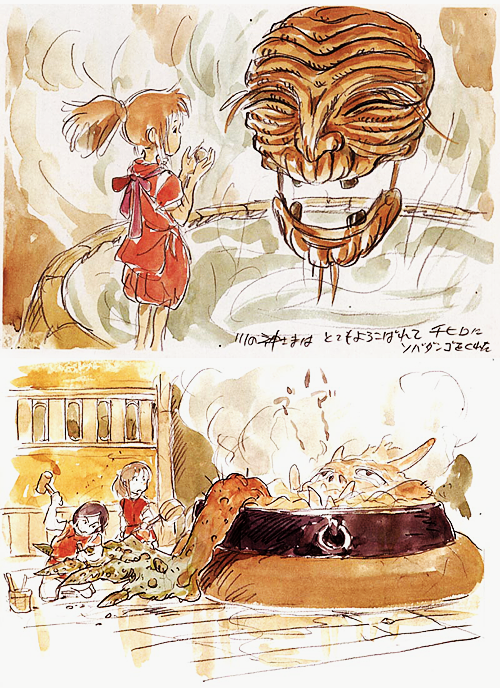 川の神さまは とてもよろこばれて チヒロに
ソバダンゴをくれた
アー アー